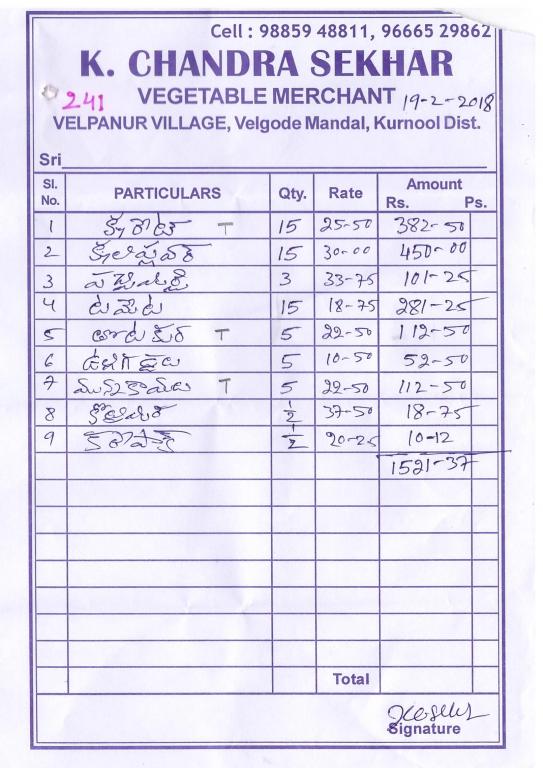 Cell : 98859 48811, 96665 29862
K. CHANDRA SEKHAR
241 VEGETABLE MERCHANT 19-2-2018
VELPANUR VILLAGE, Velgode Mandal, Kurnool Dist.
Sri
Sl. No. PARTICULARS Qty. Rate Amount Rs. Ps.
1 క్యారెట్ T 15 25-50 382-50
2 15 30-00 450-00
3 పచ్చిమిర్చి 3 33-75 101-25
4 టమేట 15 18-75 281-25
5 తోటకూర T 5 22-50 112-50
6 ఉల్లిగడ్డలు 5 10-50 52-50
7 మునక్కాయలు T 5 22-50 112-50
8 కొత్తిమీర 1/2 37-50 18-75
9 1/2 20-25 10-12
1521-37
Total
Signature